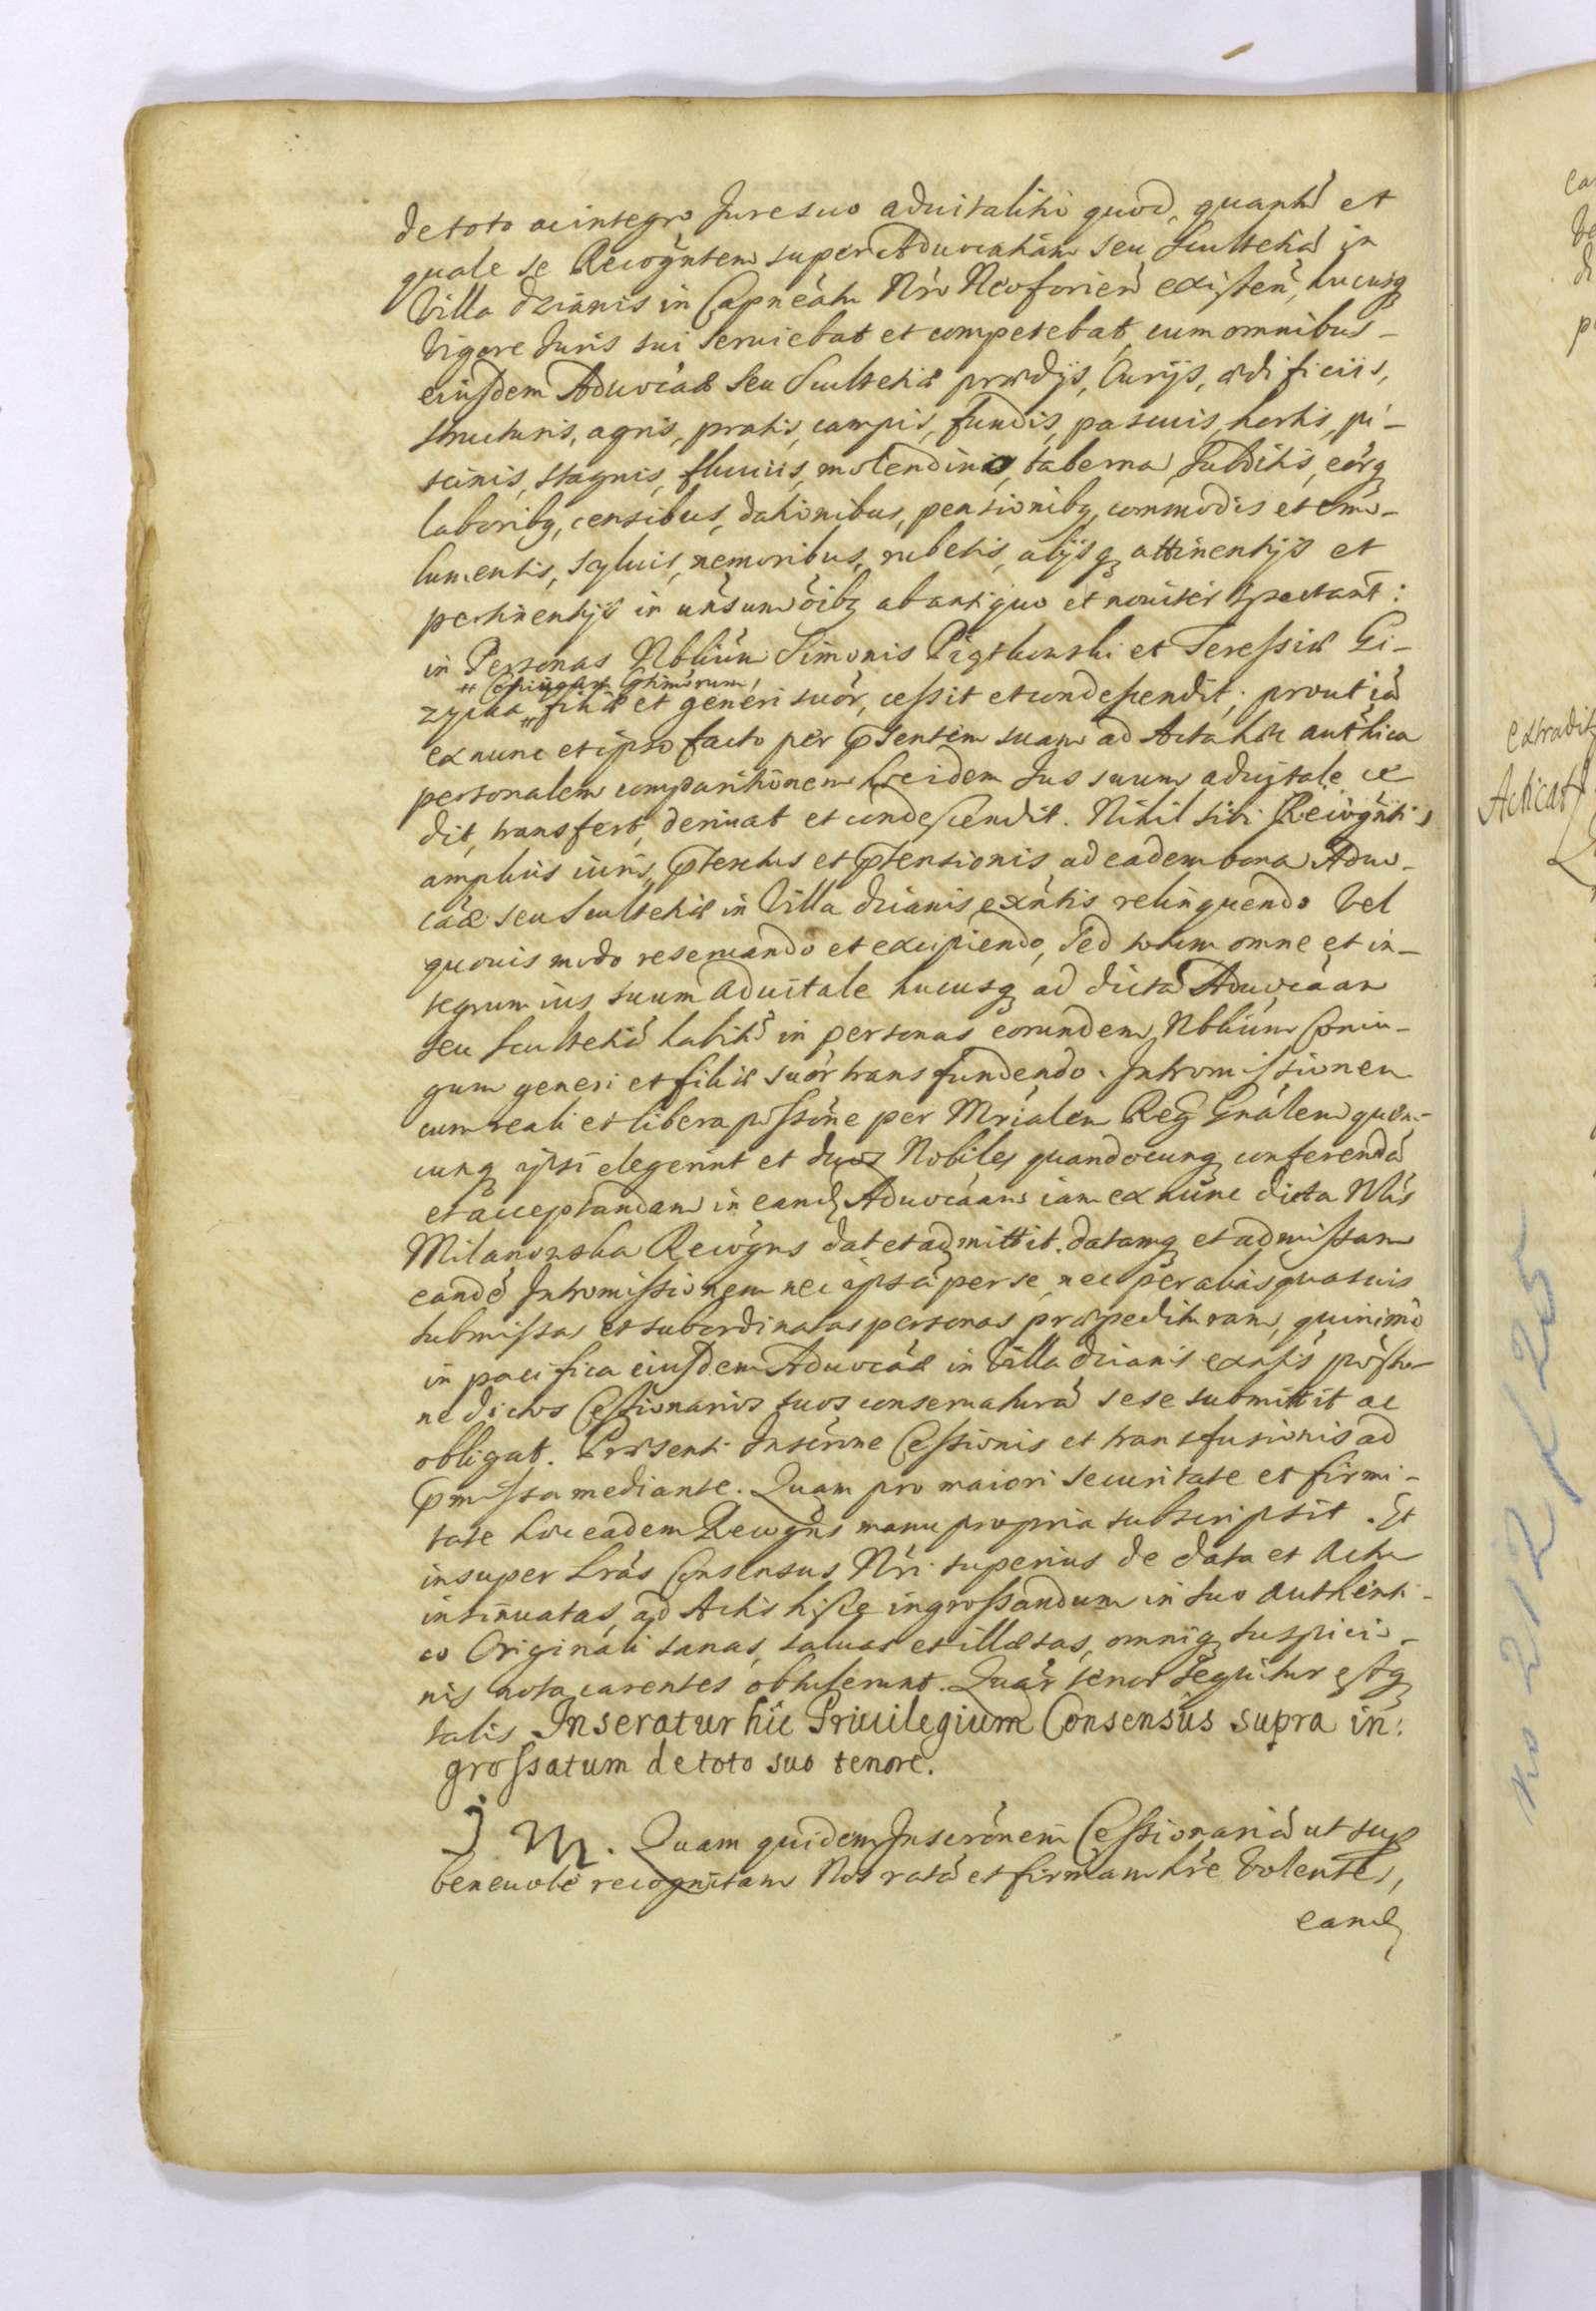 de toto ac integro Jure suo aduitalitio quod, quantũ et
quale se Recogñtem super Aduocatiam seu Scultetiã in
Villa dzianis in Capneatu Nrõ Neoforień existeń, hucusq
vigore Juris sui seruiebat et competebat, cum omnibus
eiusdem Aduocãae seu Scultetiæ prædijs, Curijs, ædificiis,
structuris, agris, pratis, campis, fundis, pascuis, hortis, pi-
scinis, stagnis, fluuiis, molendinis, taberna, Subditis, eorq
laboribq, censibus, dationibus, pensionibq, commodis et emo-
lumentis, syluis, nemoribus, rubetis, alijsq attinentijs et
pertinentijs in uńsum oibq ab antiquo et nouiter spectant:
in Personas Nbliũm Simonis et Teressiæ Gi-
# Coniugum
zycka # filiæ et generi suor, cessit et condescendit; prout iã
ex nunc et ipso facto per pſentem suam ad Acta hæc authica
personalem comparitionem hæc idem Jus suum aduitale ce
dit, transfert, deriuat et condescendit. Nihil sibi Recogñtis
amplius iuris, ptextus et ptensionis ad eadem bona Aduo-
cãæ seu Scultetiæ in Villa dzianis exñtis relinquendo vel
quouis modo reseruando et excipiendo, Sed totum omne et in-
tegrum ius suum aduitale hucusq ad dictã Aduocãam
seu Scultetiã habitũ in personas eorundem Nbliũm Coniu-
gum generi et filiæ suor transfundendo. Intromissionem
cum reali et libera possõne per Mrialem Reg Gnalem quem-
cunq ipsi elegerint et duos Nobiles quandocunq conferendã
et acceptandam in eand Aduocãam iam ex nunc dicta Nlis
Milanowska Recogns dat et admittit. datamq et admissam
eandẽ Intromissionem nec ipsa per se, nec per alias quasuis
submissas et subordinatas personas præpedituram, quinimo
in pacifica eiusdem Aduocãæ in Villa dzianis exntis possessio-
ne dictos Cessionarios suos conseruaturã sese submittit ac
obligat. Præsenti Inscrõne Cessionis et transfusionis ad
pmissa mediante. Quam pro maiori securitate et firmi-
tate hæc eadem Recogñs manu propria subscripsit. Et
insuper Lrãs Consensus Nri superius de data et Actu
insinuatas, ad Actis hisce ingrossandum in suo authenti-
co Originali sanas, saluas et illæsas, omniq suspicio-
nis nota carentes obtulerunt. Quar tenor sequitur estq
talis Inseratur hic Priuilegium Consensus supra in:
grossatum de toto suo tenore.
J M. Quam quidem Inscrõnem Cessionariã ut sup
beneuole recognitam Nos ratã et firmam hre Volentes,
eand